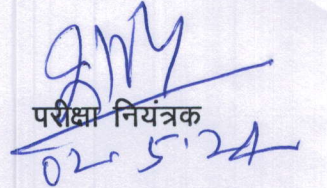 परीक्षा नियंत्रक
02.5.24